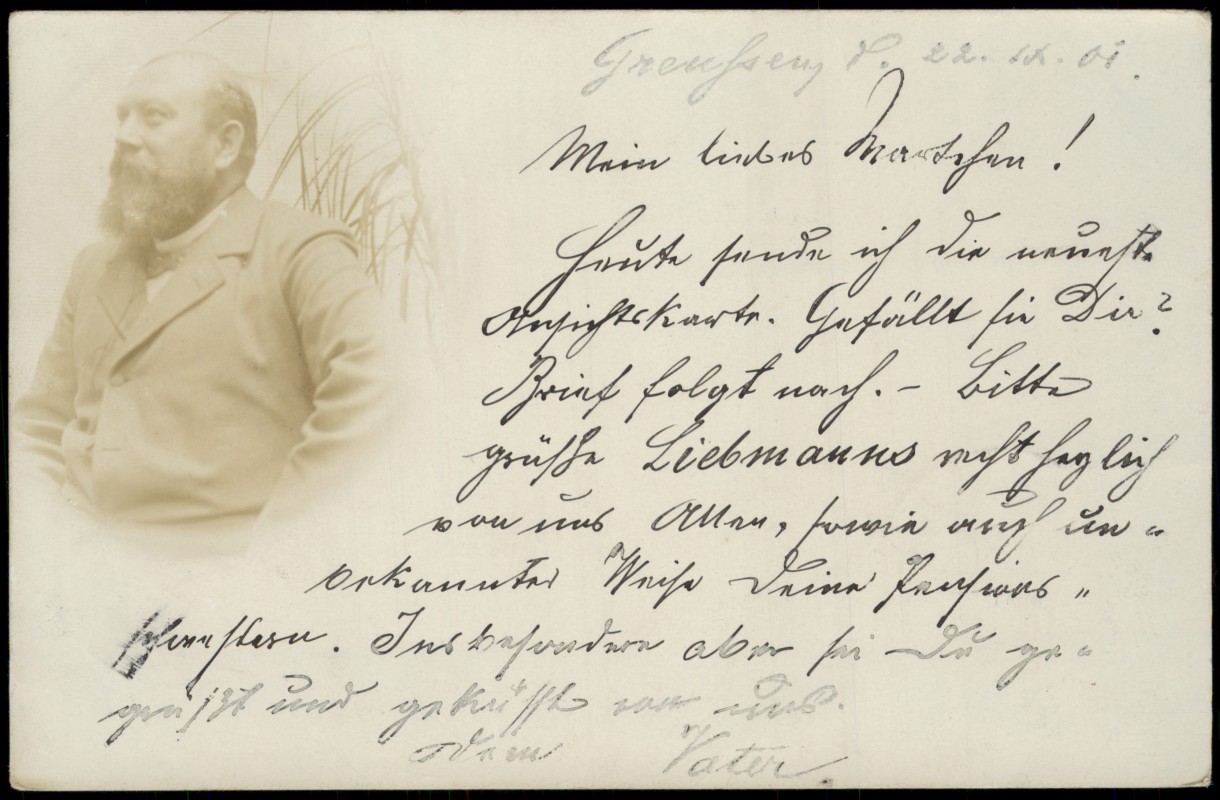 Greußen, d. 22. IX. 01.
Mein liebes Martchen!
Heute sende ich die neueste
Ansichtskarte. Gefällt sie Dir?
Brief folgt nach. – Bitte
grüße Liebmanns recht herzlich
von uns Allen, sowie auch un-
bekannter Weise Deine Pensions-
schwestern. Insbesondere aber sei Du ge-
grüßt und geküßt von uns.
Dein Vater.